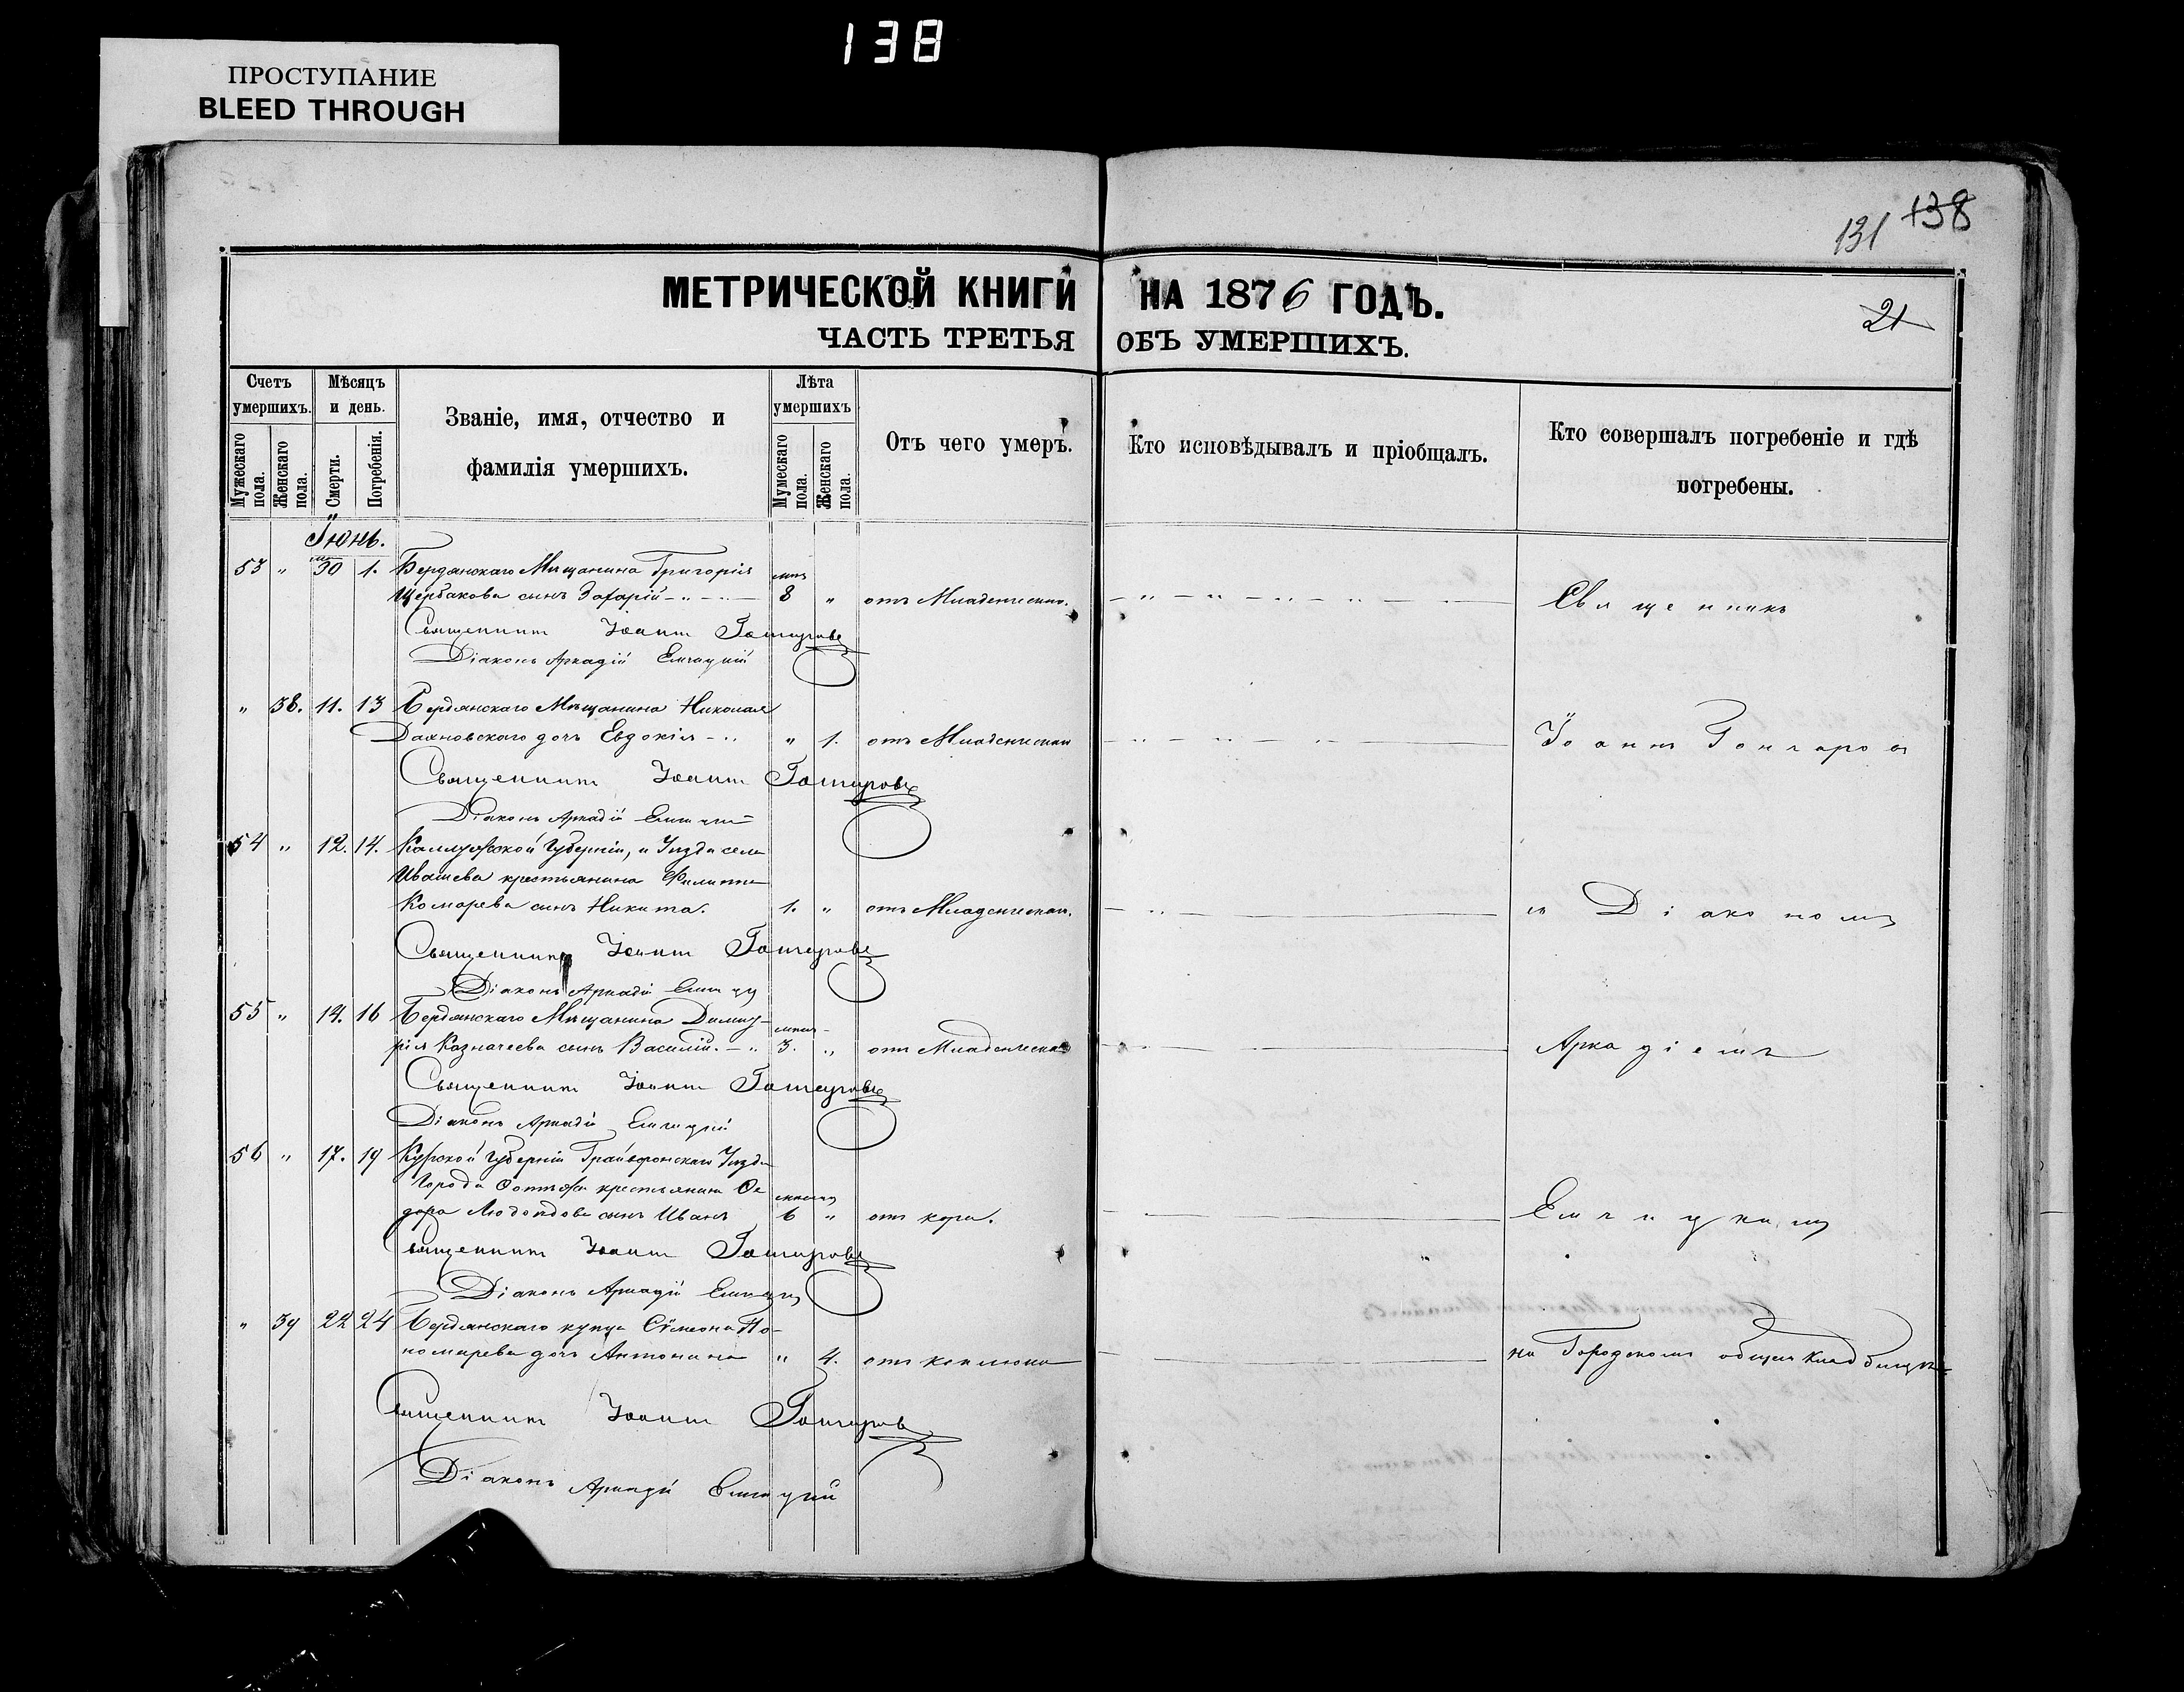 138
ПРОСТУПАНИЕ
BLEED THROUGH
131 138
МЕТРИЧЕСКОЙ КНИГИ НА 1876 ГОДЪ.
21
ЧАСТЬ ТРЕТЬЯ ОБЪ УМЕРШИХЪ.
Счетъ умершихъ.
Мужескаго пола.
Женскаго пола.
Мѣсяцъ и день.
Смерти.
Погребенія.
Званіе, имя, отчество и
фамилія умершихъ.
Лѣта умершихъ
Мужескаго пола.
Женскаго пола.
Отъ чего умеръ.
Кто исповѣдывалъ и пріобщалъ.
Кто совершалъ погребеніе и гдѣ
погребены.
Іюнь.
53 " 30 1. Бердянскаго Мѣщанина Григорія
Щербакова сынъ Захарій 8 " отъ Младенческ. Священникъ
Священникъ Іоаннъ Гончаровъ
Діаконъ Аркадій Емчицкій
" 38. 11. 13 Бердянскаго Мѣщанина Николая
дочь Евдокія " 1. отъ Младенческой Іоаннъ Гончаровъ
Священникъ Іоаннъ Гончаровъ
Діаконъ Аркадій
54 " 12. 14. Калужской Губерніи, и Уѣзда села
Ивашева крестьянина Филиппа
Комарева сынъ Никита. 1. " отъ Младенческой. съ Діакономъ
Священникъ Іоаннъ Гончаровъ
Діаконъ Аркадій
55 " 14. 16 Бердянскаго Мѣщанина Димит-
рія Казначеева сынъ Василій. 3. " отъ Младенческой Аркадіемъ
Священникъ Іоаннъ Гончаровъ
Діаконъ Аркадій Емчицкій
56 " 17. 19 Курской Губерніи Грайворонскаго Уѣзда
Города крестьянина Ѳе
дора сынъ Иванъ 6 " отъ кори. Емчицкимъ
Священникъ Іоаннъ Гончаровъ
Діаконъ Аркадій
" 39 22 24 Бердянскаго купца Сѵмеона По-
номарева дочь Антонина " 4. отъ коклюша на Городскомъ общемъ Кладбищѣ
Священникъ Іоаннъ Гончаровъ
Діаконъ Аркадій Емчицкій